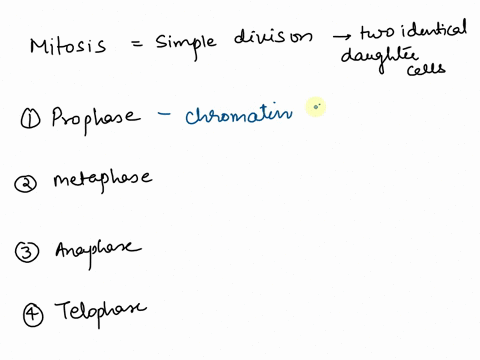 Mitosis = Simple divison → two identical
daughter
cells
① Prophase - chromatin
② metaphase
③ Anaphase
④ Telophase